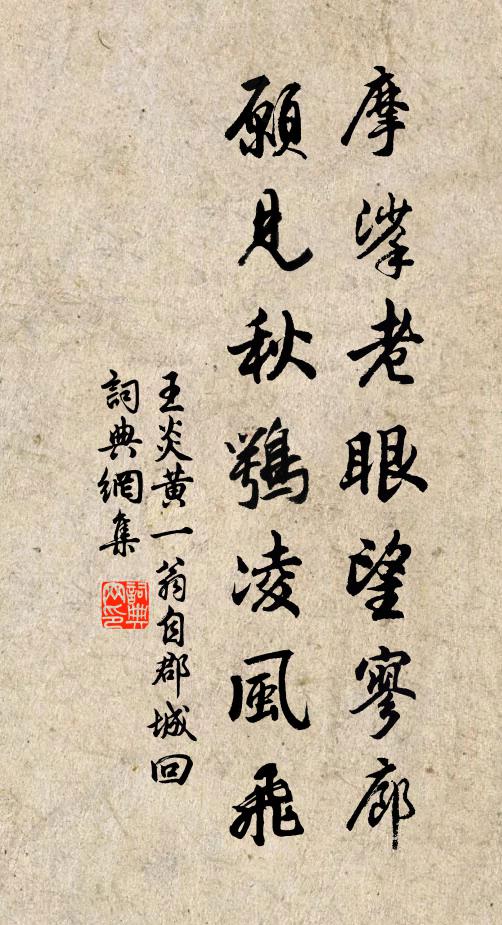 摩挲老眼望寥廓
願見秋鶚凌風飛
王炎黄一翁自郡城回
詞典網集
詞典網印